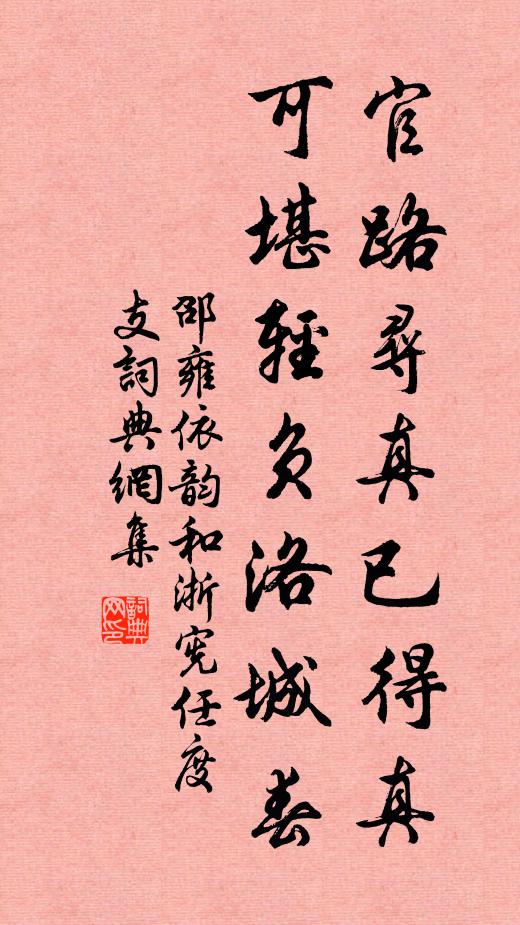 官路尋真已得真
可堪輕負洛城春
邵雍依韵和浙宪任度
支詞典網集
詞典
网印